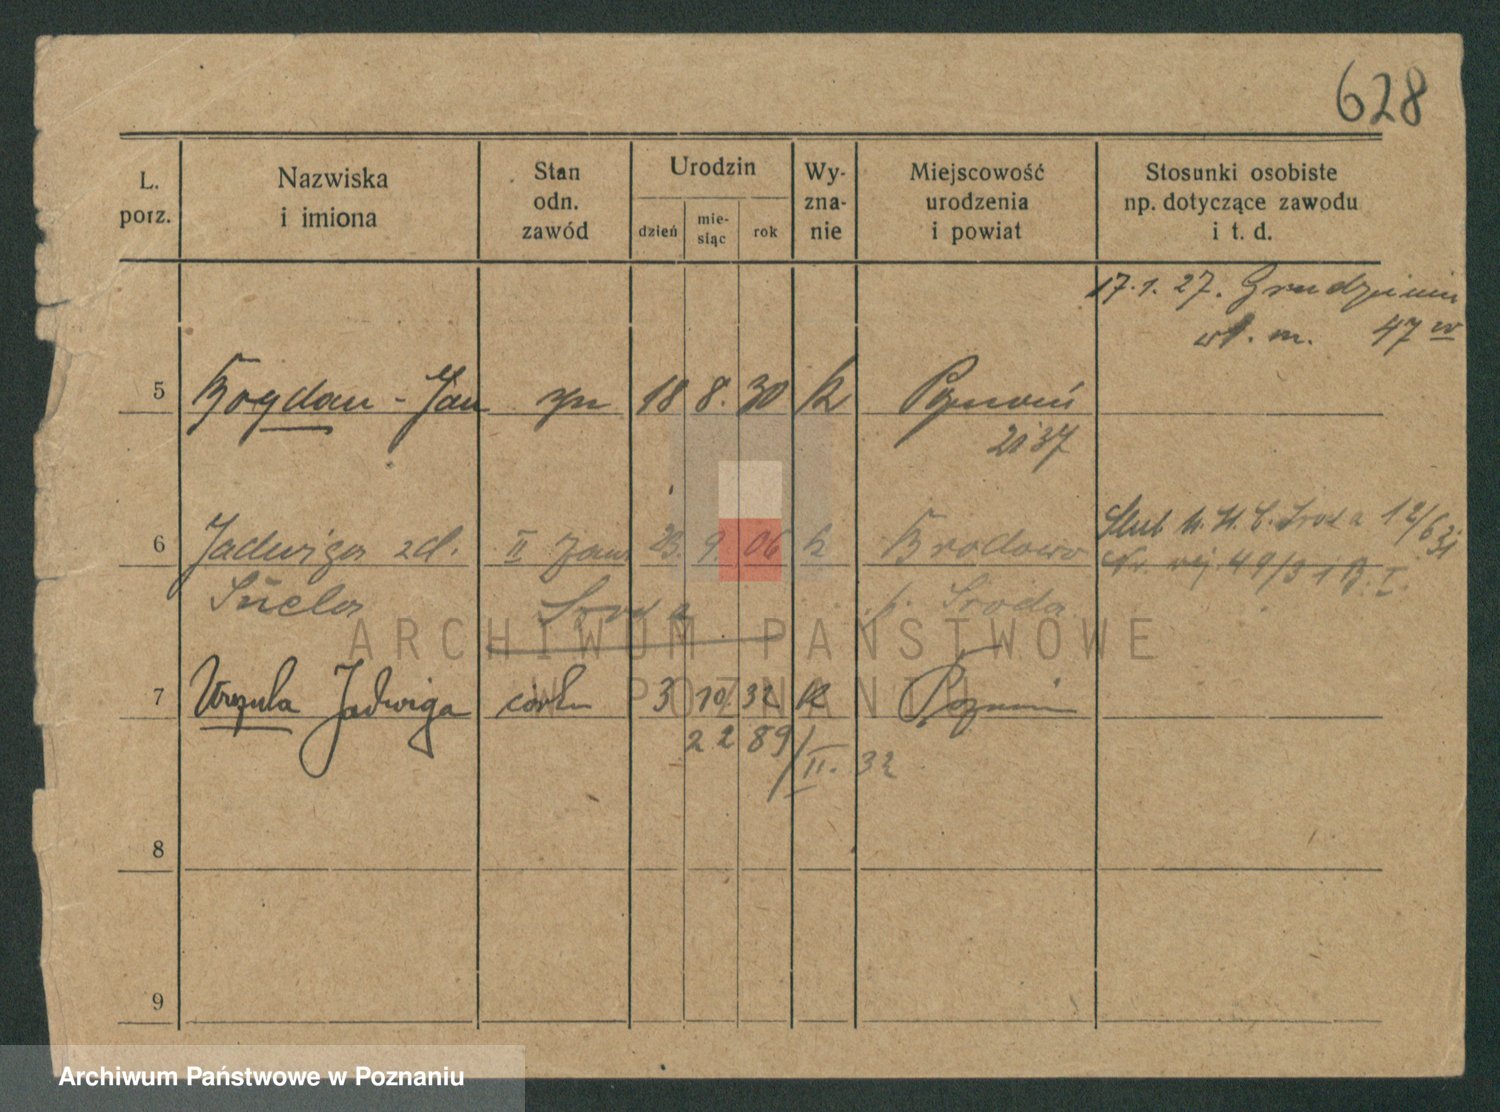 628
L. porz.
Nazwiska i imiona
Stan odn. zawód
Urodzin
dzień
mie-siąc
rok
Wy-zna-nie
Miejscowość urodzenia i powiat
Stosunki osobiste np. dotyczące zawodu i t. d.
17.1.27. Grudzieniec
wł. m. 47
5 Bogdan - Jan syn 18 8. 30 k Poznań
2137
6 Jadwiga zd. II żona 23. 9. 06 k Brodowo Ślub U. S. C. Środa 12/6 31
Nr. rej. 49/31
Środa p. Środa
7 Urszula Jadwiga córka 3 10 32 k Poznań
2289/II. 32
8
9
ARCHIWUM PAŃSTWOWE
W POZNANIU
Archiwum Państwowe w Poznaniu